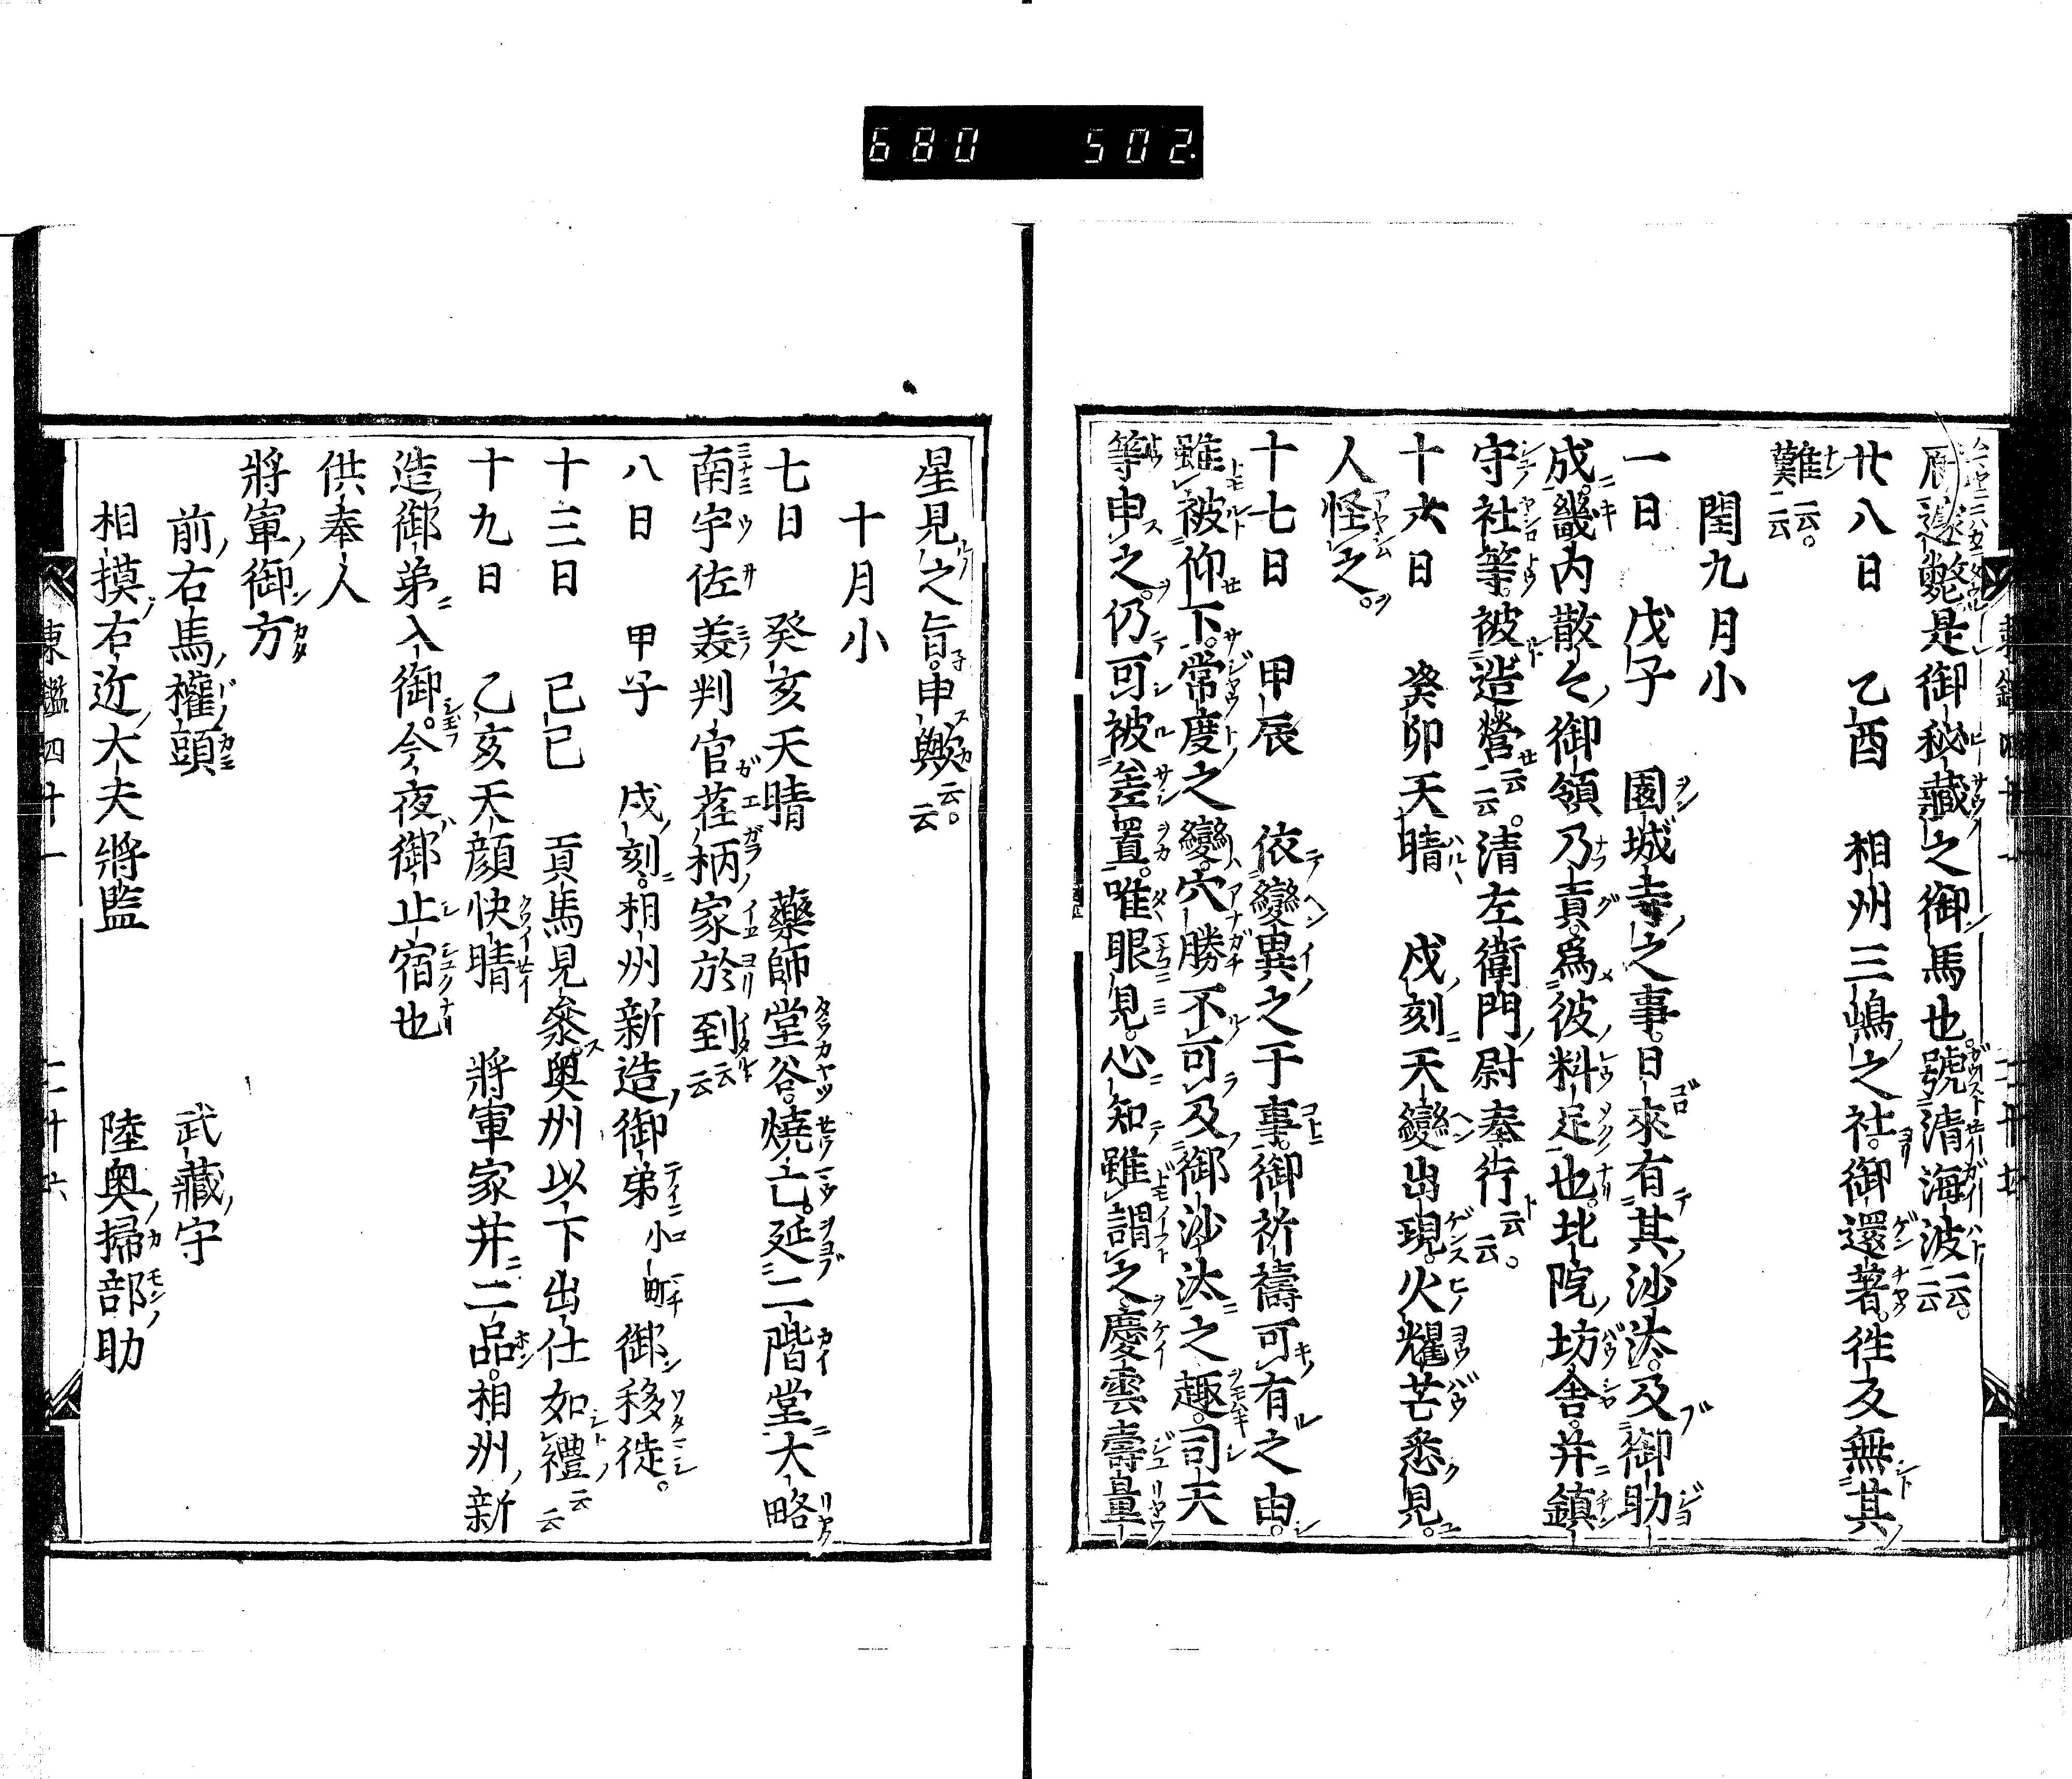 680 502.
厩遂斃是御秘藏之御馬也。號清海波云云。
廿八日 乙酉 相州三嶋之社御還著。往反無其
難云云。
閏九月小
一日 戊子 園城寺之事。日來有其沙汰。及御助
成。畿内散々御領乃貢。爲彼料足也。北院坊舍。并鎮
守社等。被造營云云。清左衛門尉奉行云云。
十六日 癸卯天晴 戌刻天變出現。火耀芒悉見。
人怪之。
十七日 甲辰 依變異之于事。御祈禱可有之由。
雖被仰下。常度之變。穴勝不可及御沙汰之趣。司天
等申之。仍可被差置。唯眼見。心知雖謂之慶雲壽量
星見之旨。申歟云云。
十月小
七日 癸亥天晴 藥師堂谷。燒亡。延二階堂大略
南宇佐美判官荏柄家於到云云
八日 甲子 戌刻。相州新造御弟小町御移徙。
十三日 已已 貢馬見參。奥州以下出仕如禮云云
十九日 乙亥天顔快晴 將軍家并二品。相州新
造御弟入御。今夜御止宿也
供奉人
將軍御方
前右馬權頭 武藏守
相摸右近大夫將監 陸奥掃部助
東鑑四十一 二十六